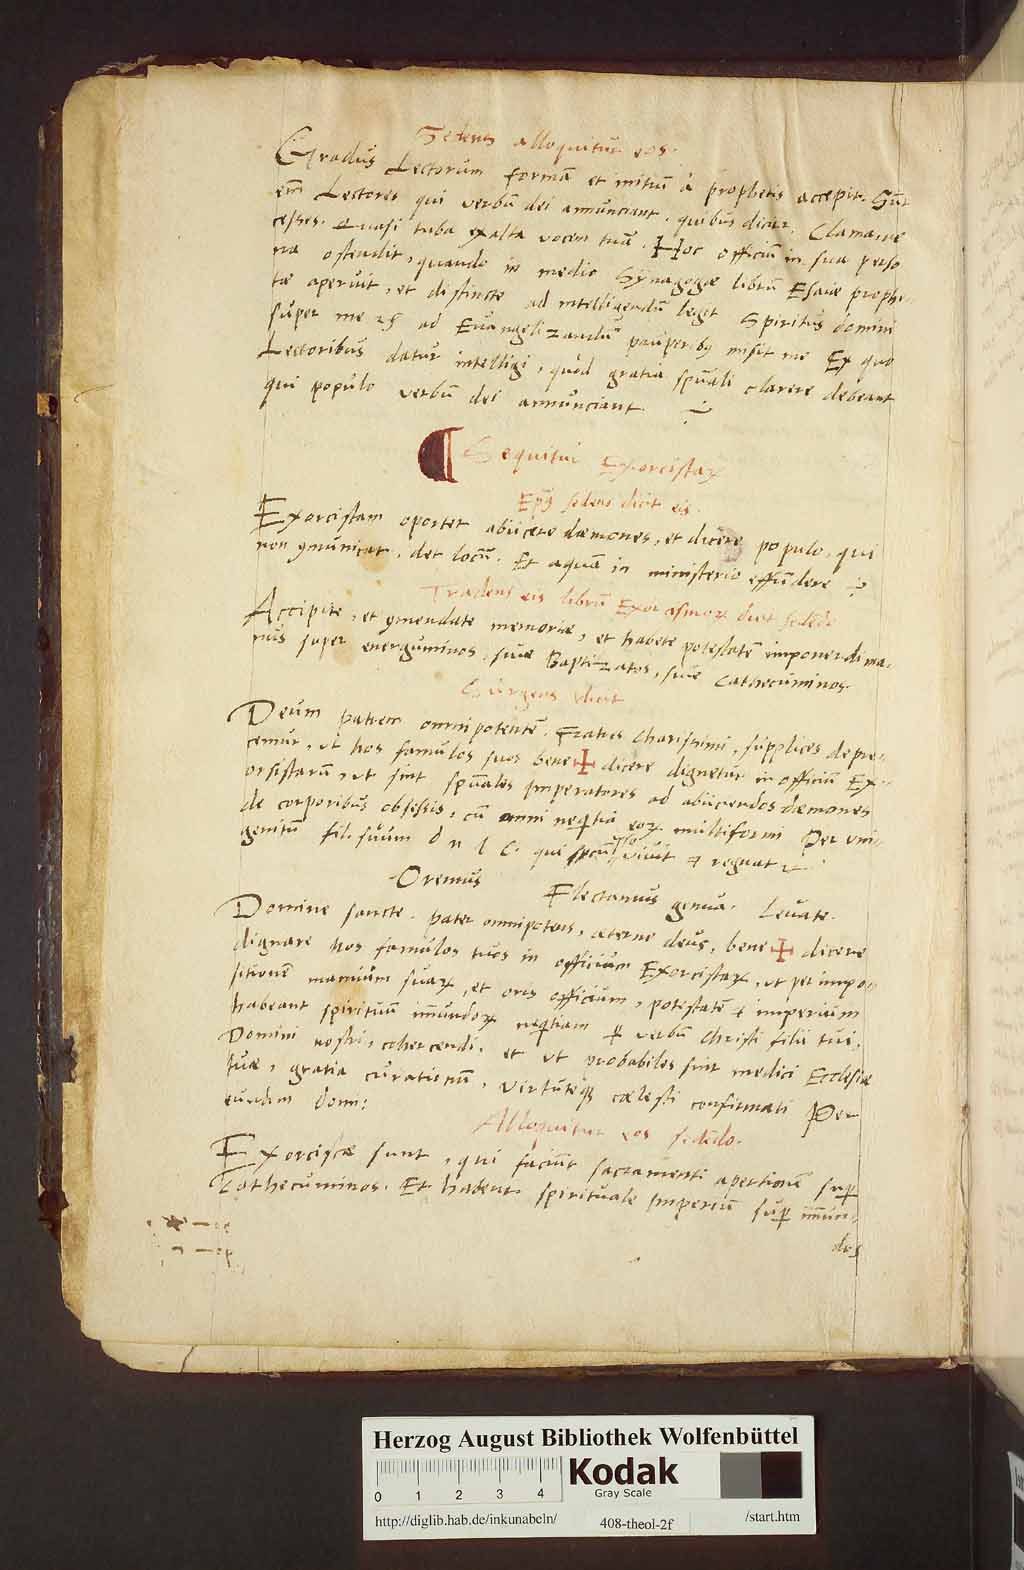 Sedens alloquitur eos.
Gradus Lectorum formā et initiū à prophetis accepit. Sūt
em̄ Lectores qui verbū dei annunciant. quibus dicitr. Clama, ne
cesses. Quasi tuba exalta vocem tuā. Hoc officiū in sua perso
na ostendit, quando in medio Synagogæ librū Esaiæ prophe
tæ aperuit, et distincte ad intelligendū leget Spiritus domini
super me ⁊c̄ ad Euangelizandū pauperibꝫ misit me Ex quo
Lectoribus datur intelligi, quòd gratia spūali clarere debeant
qui populo verbū dei annunciant
¶ Sequitur Exorcistaꝝ
Ep̄ꝰ sedens dicit eis.
Exorcistam oportet abiicere dæmones, et dicere populo, qui
non ꝯmunicat, det locū. Et aquā in ministerio effūdere
Tradens eis librū Exorcismoꝝ dicit sedēdo
Accipite, et ꝯmendate memoriæ, et habete potestatē imponendi ma-
nus super energuminos, siue Baptizatos, siue Cathecuminos.
Surgens dicit
Deum patrem omnipotentē. Fratres charissimi, supplices depre-
cemur, vt hos famulos suos bene✠dicere dignetur in officiū Ex-
orsistarū, vt sint spūales Imperatores ad abiiciendos dæmones
de corporibus obsessis, cū omni neq̄tia eoꝝ multiformi Per vni-
genitū fil. suum d n I C. qui secū vivit ⁊ regnat
Oremus Flectamus genua. Leuate.
Domine sancte. pater omnipotens, æterne deus, bene✠dicere
dignare hos famulos tuos in officium Exorcistaꝝ, vt per impo-
sitionē manuum suaꝝ, et oris officium, potestatē ⁊ imperium
habeant spirituū im̄undoꝝ neq̄tiam ꝑ verbū Christi filii tui,
Domini nostri, cohercendi. et vt probabiles sint medici Ecclesiæ
tuæ, gratia curationū, virtuteqꝫ cœlesti confirmati Per
eundem Dom:
Alloquitur eos sedēdo.
Exorcistæ sunt, qui faciūt sacramenti apertionē suꝑ
Cathecuminos. Et habent spirituale Imperiū suꝑ im̄un-
dos
Herzog August Bibliothek Wolfenbüttel
0 1 2 3 4
Kodak
Gray Scale
http://diglib.hab.de/inkunabeln/ 408-theol-2f /start.htm